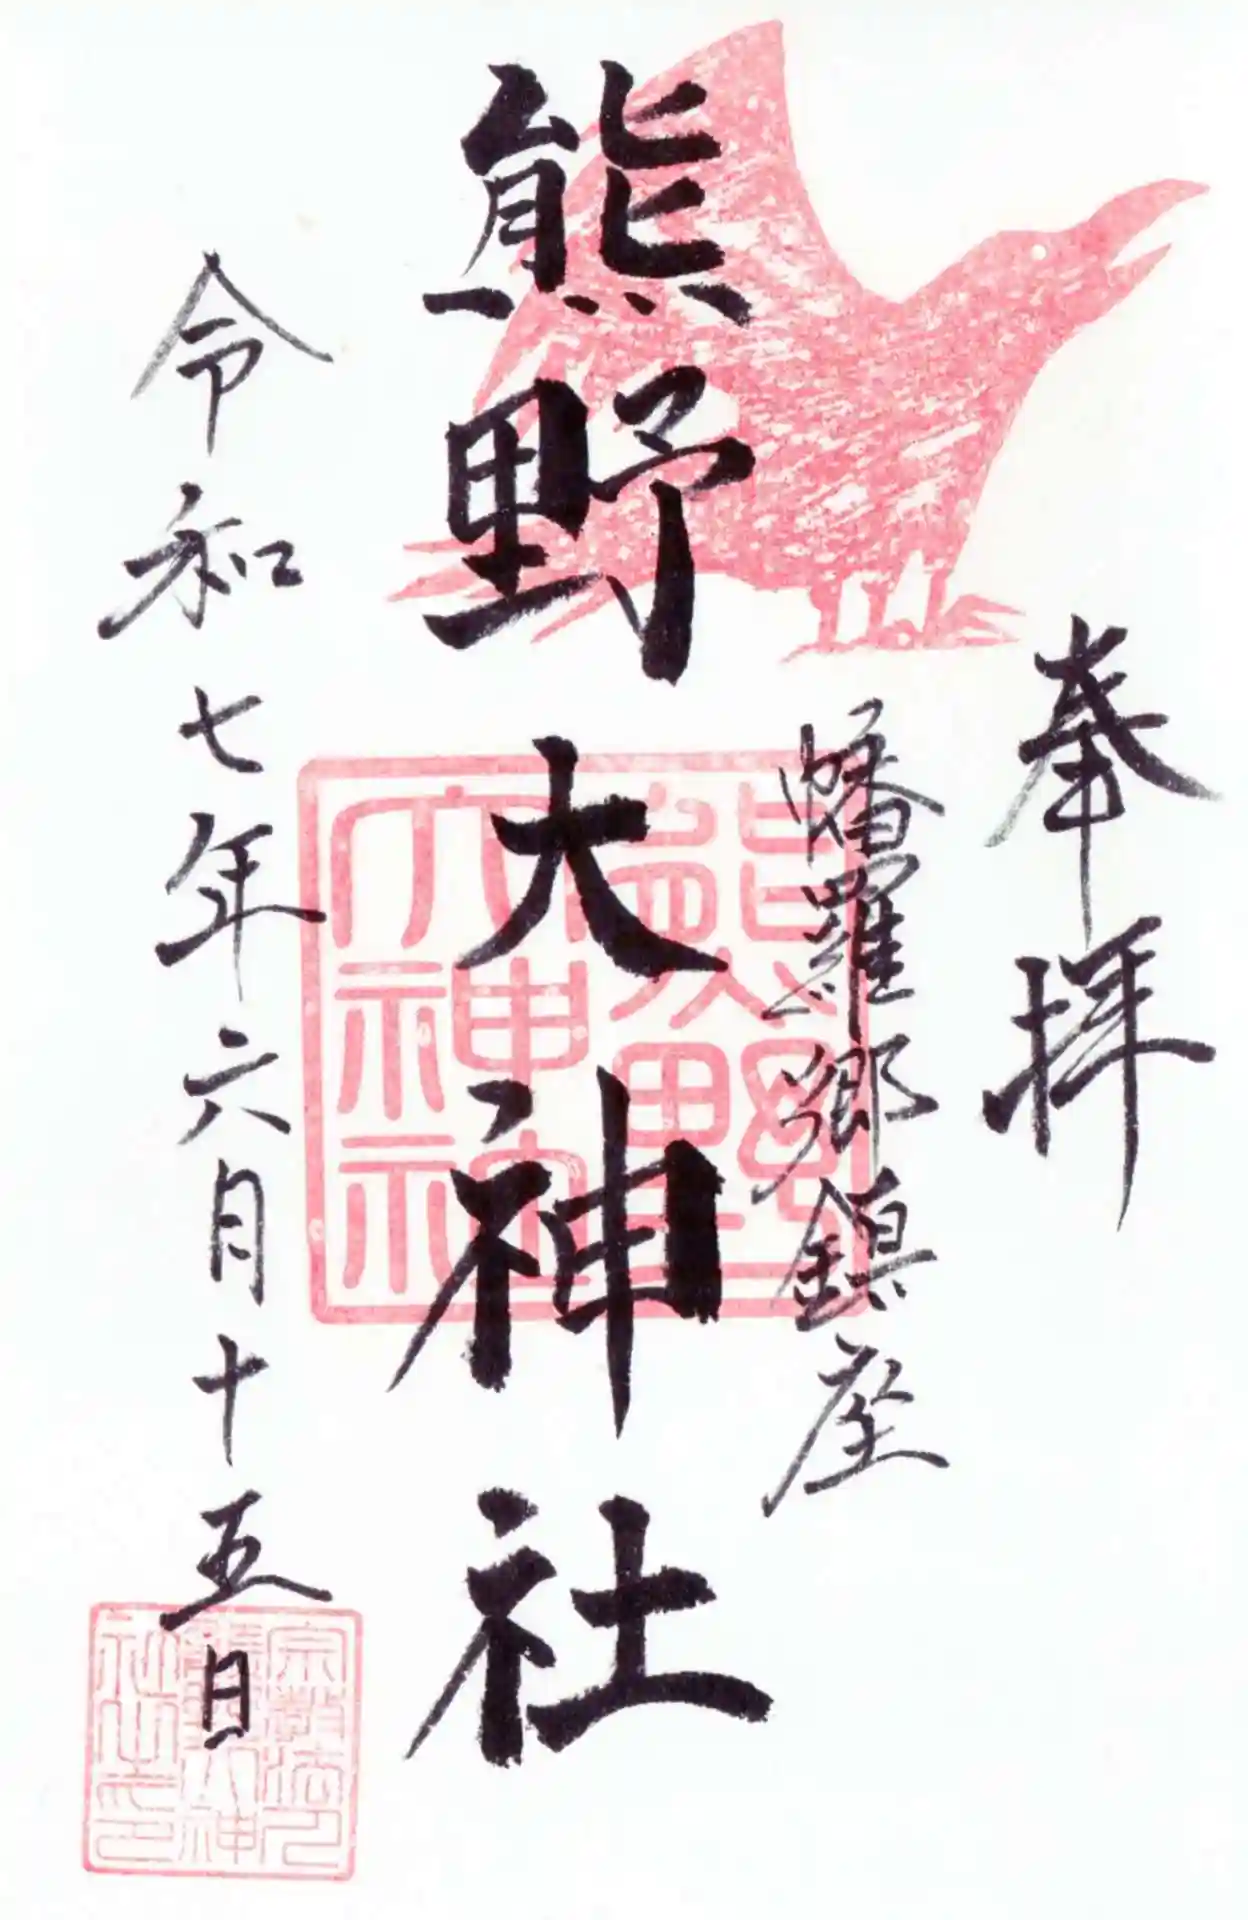 奉拝
幡羅郷鎮座
熊野大神社
令和七年六月十五日
熊野
大神社